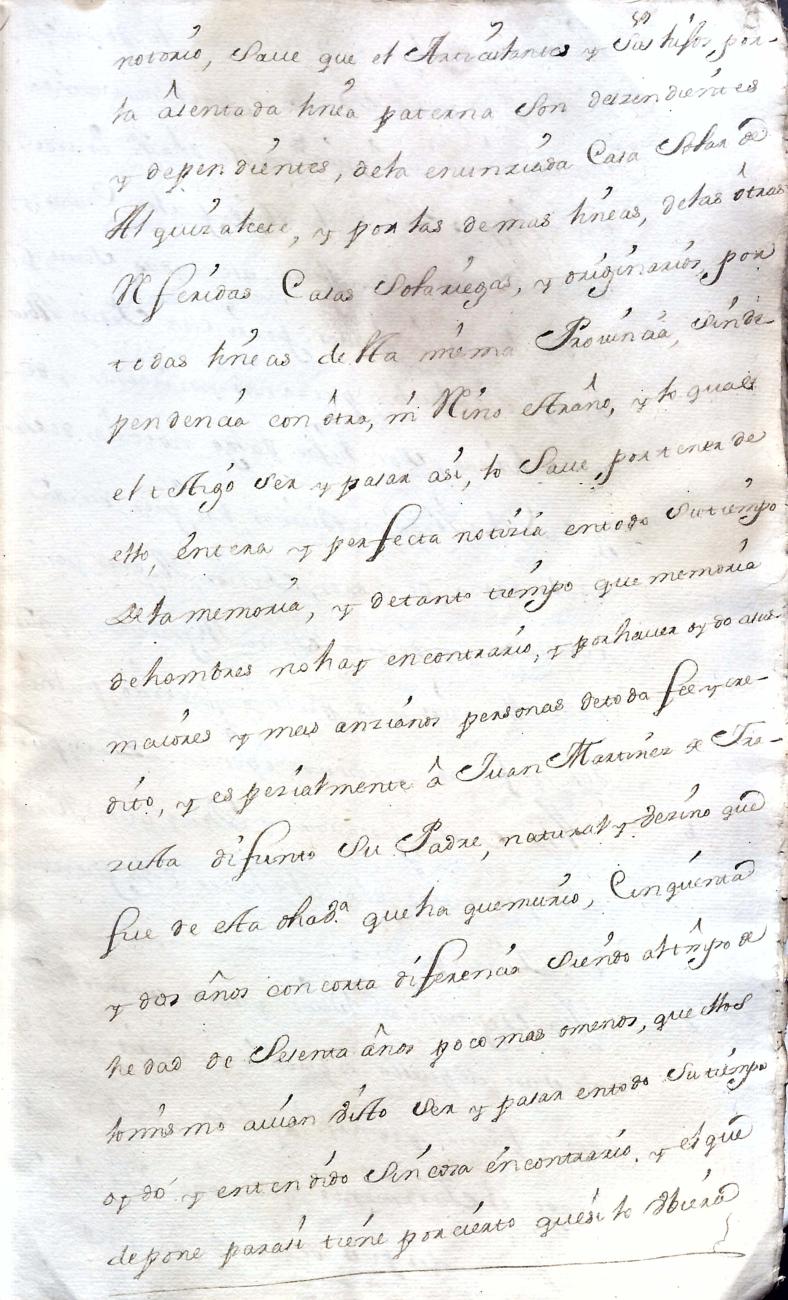 notorio, Save que el Articulante y Sus hijos, por
la âsentada linea paterna Son deszendientes
y dependientes, dela enunziada Casa Solar de
Alquizalete, y por las demas lineas, delas ôtras
Referidas Casas Solariegas, y originarios, por
todas lineas de esta misma Provincia, sin de-
pendencia con ôtra, ni Reino estraño, y lo qual
el testigo Ser y pasar asi, lo Save, por tener de
ello, entera y perfecta notizia entodo Sutiempo
dela memoria, y detanto tiempo que memoria
dehombres nohay encontrario, y porhaver oydo asus
maiores y mas anzianos personas detoda fee y cre-
dito, y espezialmente â Juan Martinez de Tra-
zusta difunto Su Padre, natural y vezino que
fue de esta dhaV.ª queha quemurio, Cinquenta
y dos años concorta diferencia Siendo altmpo de
hedad de Sesenta años poco mas omenos, que ellos
lomismo avian visto Ser y pasar entodo Sutiempo
oydo y entendido Sincosa encontrario. y el que
depone parasi tiene porcierto quesi lo ubiera